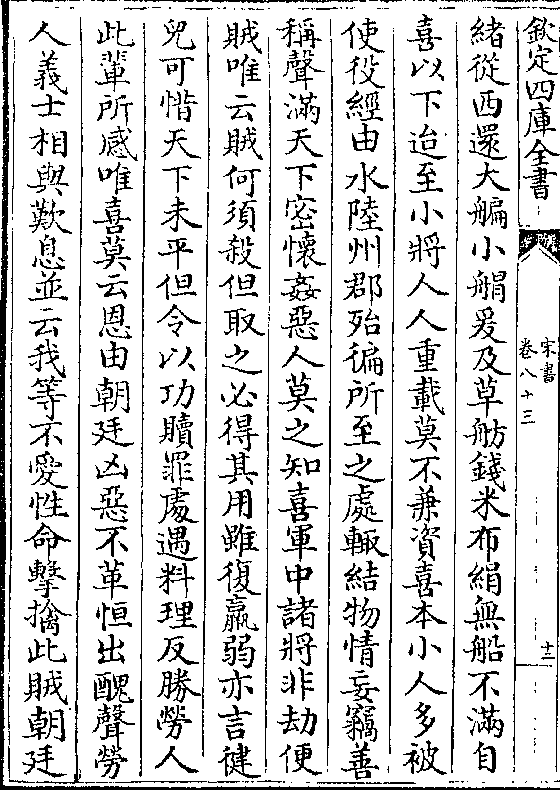 欽定四庫全書
宋書
卷八十三
十二
緒從西還大艑小艒爰及草舫錢米布絹無船不滿自
喜以下迨至小將人人重載莫不兼資喜本小人多被
使役經由水陸州郡殆徧所至之處輒結物情妄竊善
稱聲滿天下密懷姦惡人莫之知喜軍中諸將非劫便
賊唯云賊何須殺但取之必得其用雖復羸弱亦言健
兒可惜天下未平但令以功贖罪處遇料理反勝勞人
此輩所感唯喜莫云恩由朝廷凶惡不革恒出醜聲勞
人義士相與歎息並云我等不愛性命擊擒此賊朝廷